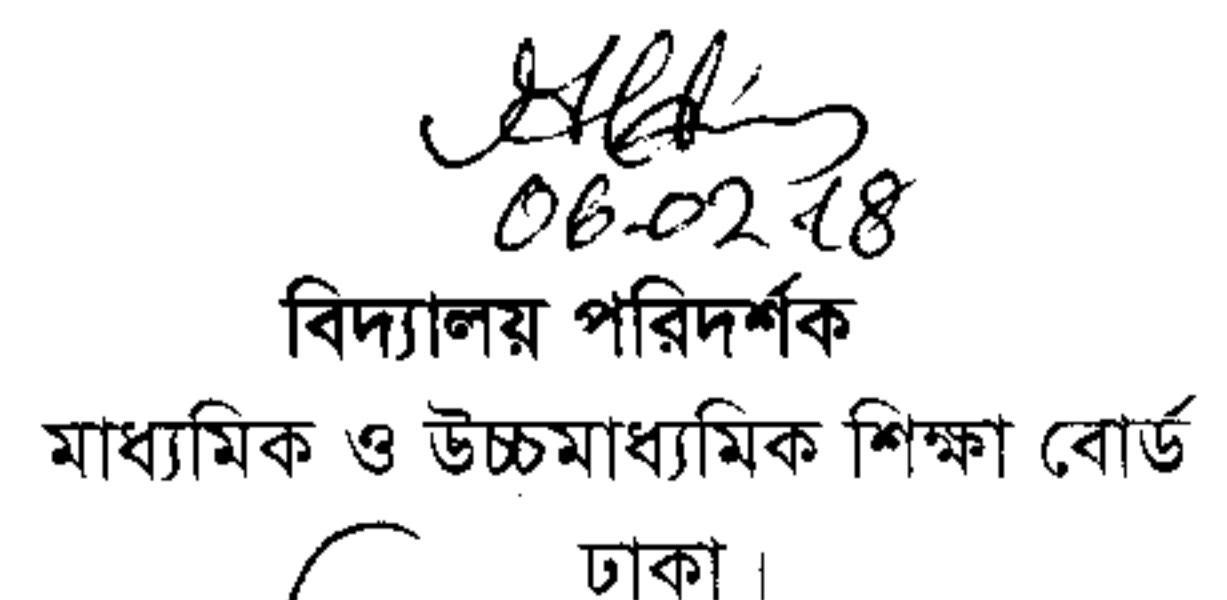 06-02-18
বিদ্যালয় পরিদর্শক
মাধ্যমিক ও উচ্চমাধ্যমিক শিক্ষা বোর্ড
ঢাকা।